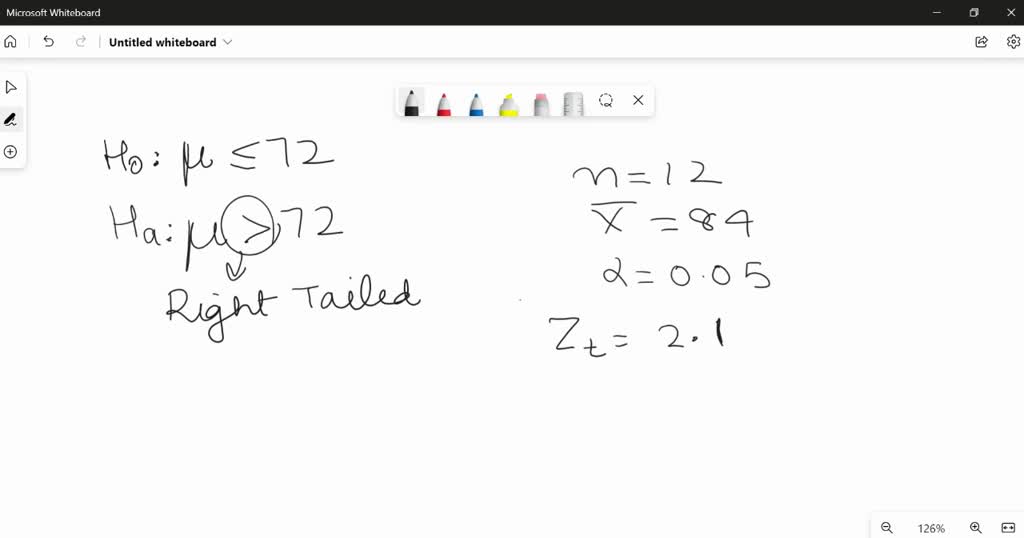 Microsoft Whiteboard
Untitled whiteboard
H₀: μ ≤ 72
Hₐ: μ > 72
Right Tailed
n = 12
x̅ = 84
α = 0.05
Zₜ = 2.1
126%